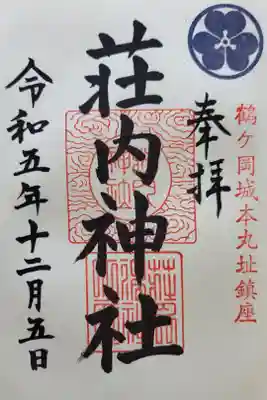 鶴ケ岡城本丸址鎮座
奉拝
荘内神社
令和五年十二月五日